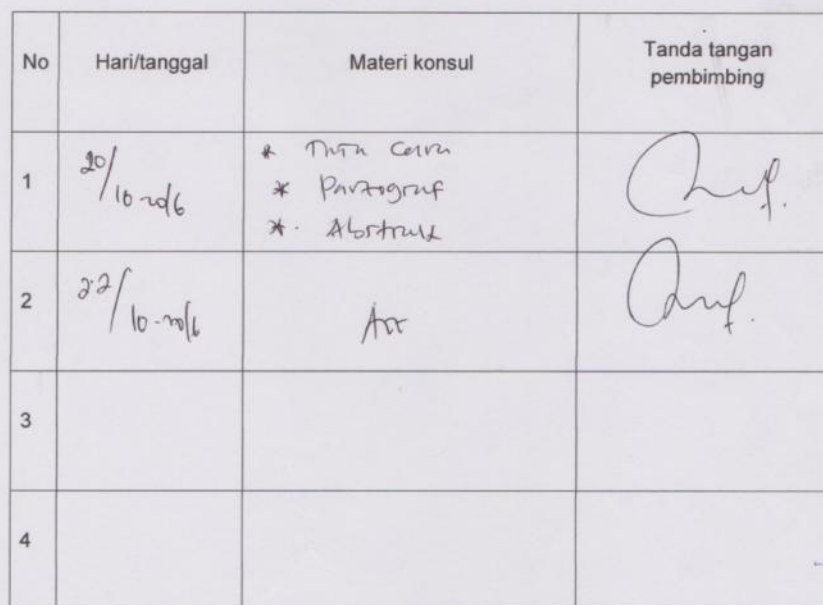 No Hari/tanggal Materi konsul Tanda tangan
pembimbing
1 20/10-2016 * Tata
* Paragraf
* Abstrak
2 22/10-2016
3
4